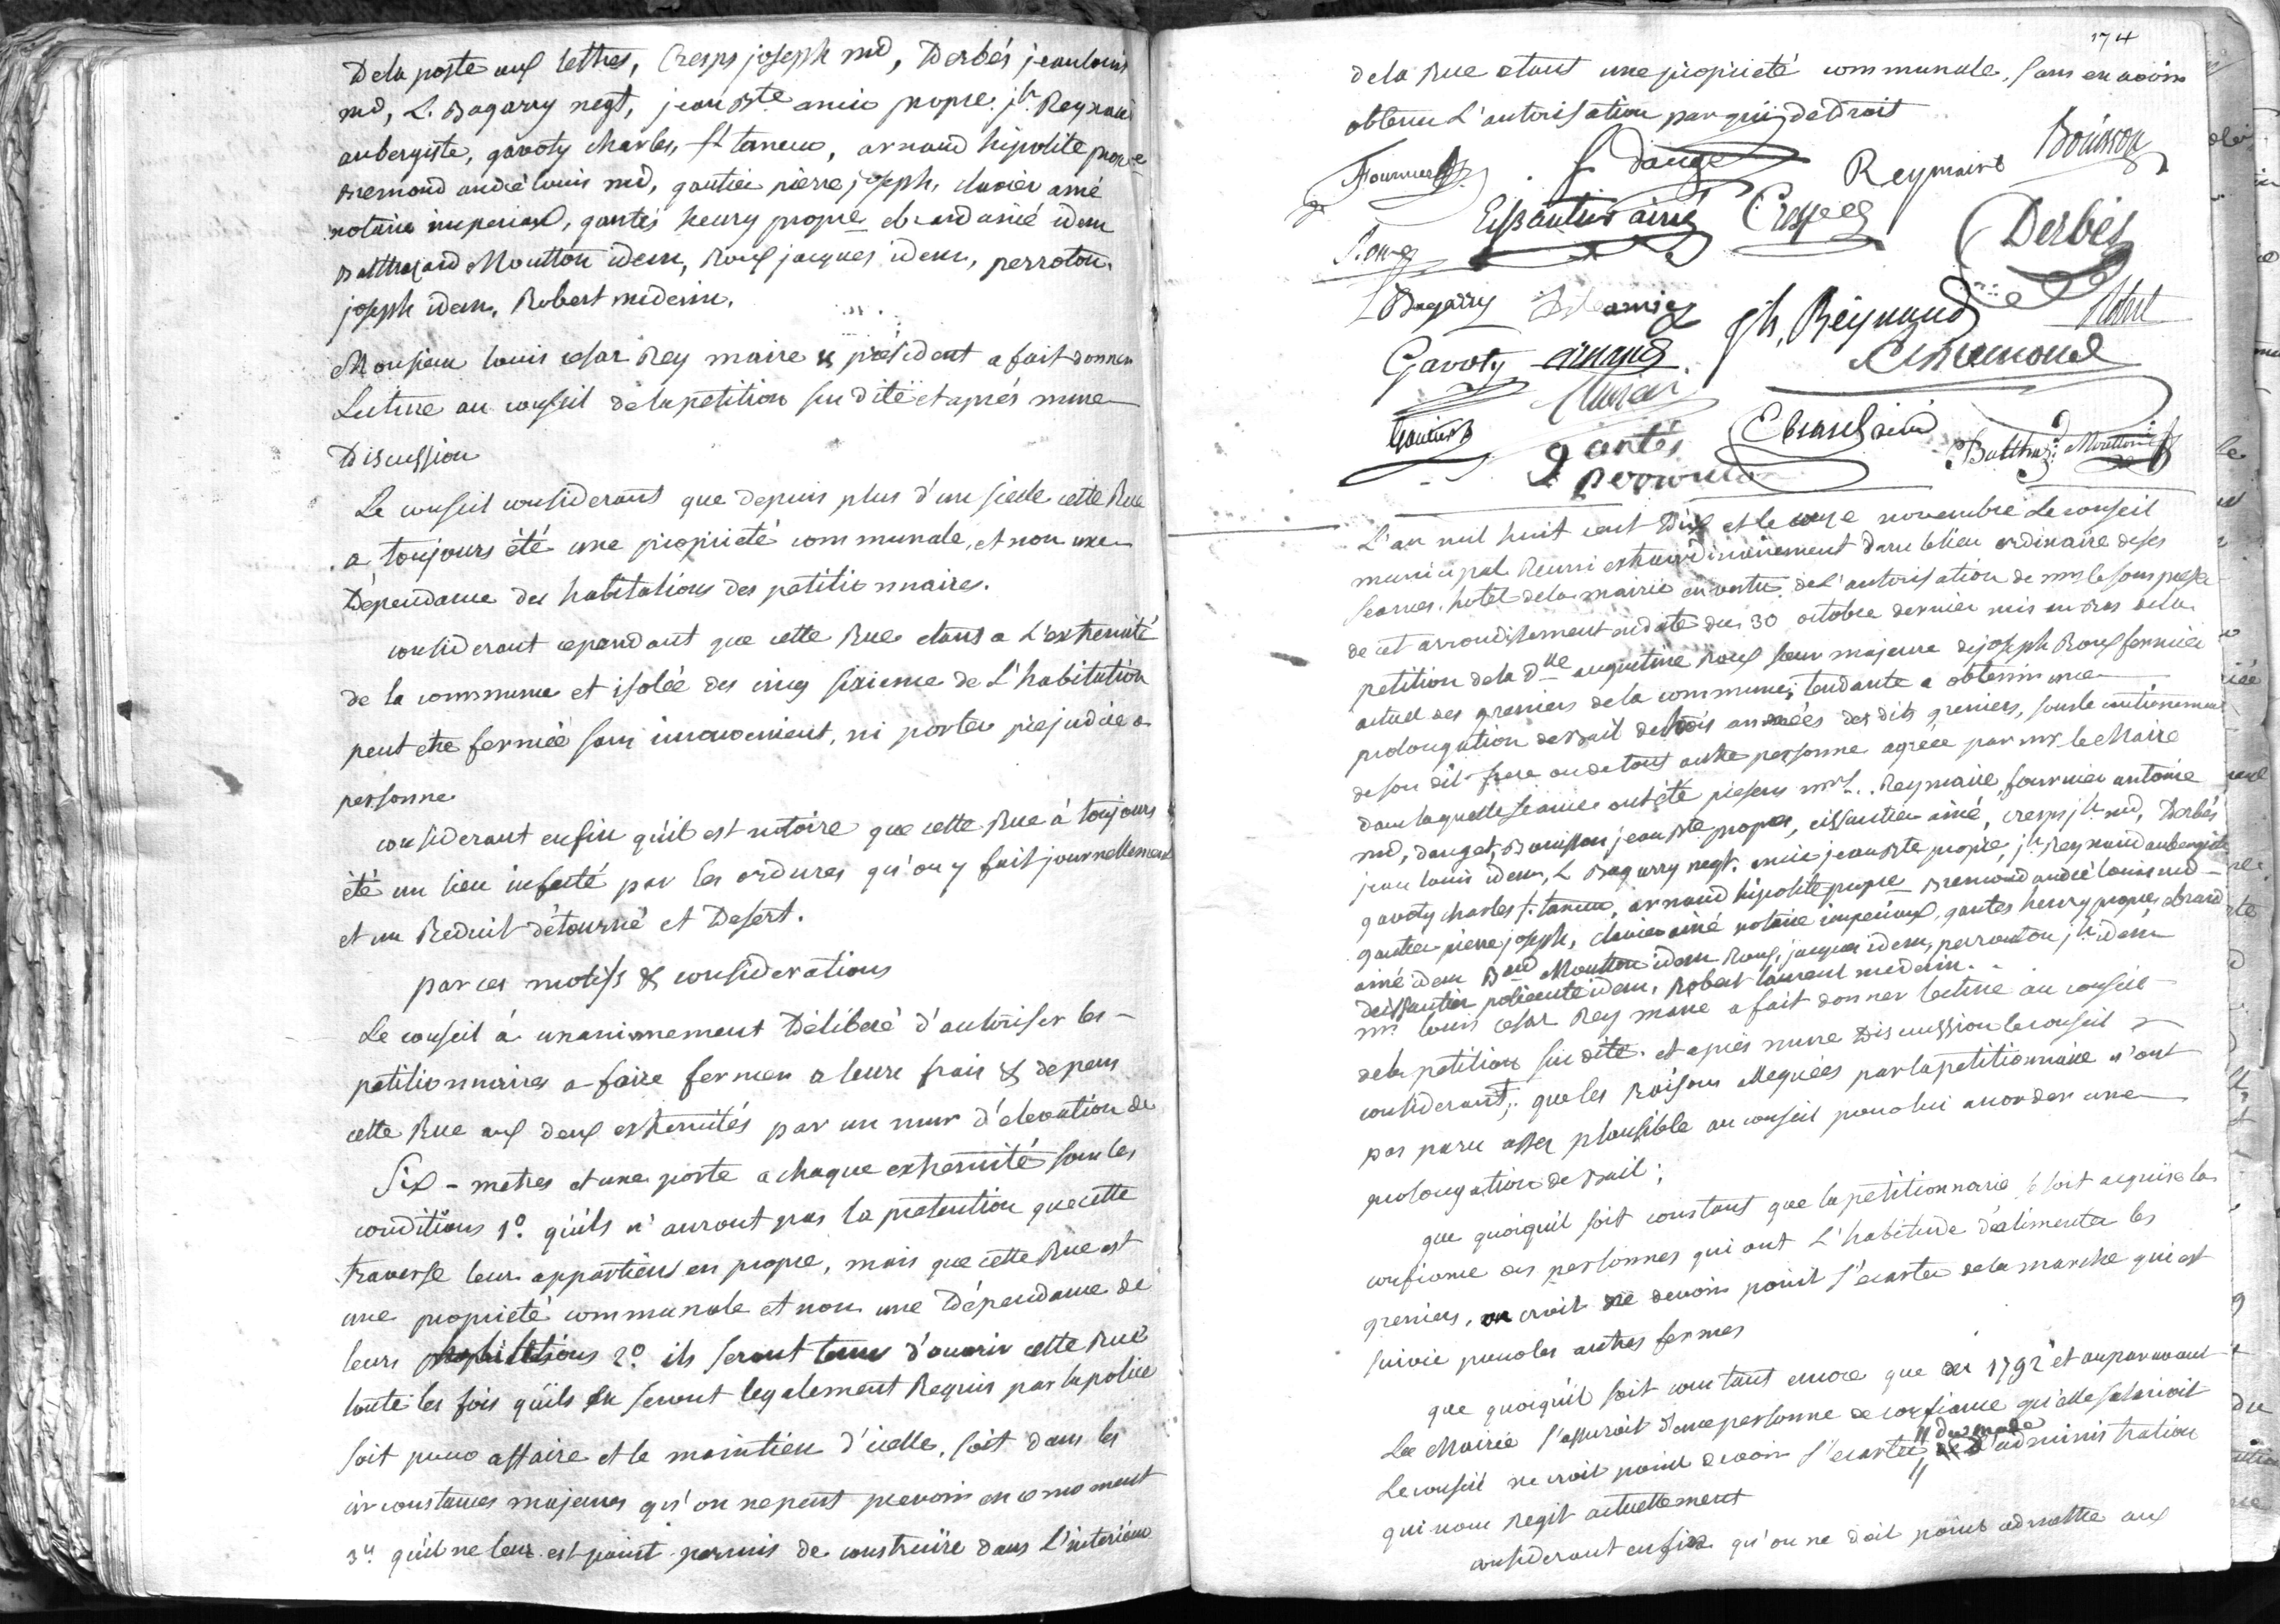 De la poste aux lettres, Cresps joseph md, Derbés jean louis
md, L. Bagarry negt, jean Bte amic propre. jh. Reynaud
aubergiste, gavoty charles, st tanneur, arnaud hipolite propre
Bremond andré louis md, gautier pierre joseph, clavier ainé
notaire imperial, gantés henry propre ebrard ainé idem
Balthazard Moutton idem, Roux jacques idem, perroton
joseph idem, Robert medecin.
Monsieur louis cesar Rey maire & président a fait donner
Lecture au conseil de la petition sus dite et aprés mure
Discussion
Le conseil considerant que depuis plus d'un siecle cette Rue
a toujours été une propriété communale, et non une
Dépendance des habitations des petitionnaires.
considerant cependant que cette Rue etant a L'extremité
de la commune et isolée des cinq sixieme de L'habitation
peut etre fermée sans inconvenient, ni porter prejudice a
personne
considerant enfin qu'il est notoire que cette Rue à toujours
été un lieu infecté par les ordures qu'on y fait journellement
et un Reduit détourné et Desert.
par ces motifs & considerations
Le conseil à unanimement Déliberé d'autoriser les
petitionnaires a faire fermer a leurs frais & depens
cette Rue aux deux extremités par un mur d'élevation de
Six - metres et une porte a chaque extremité sous les
conditions 1º. qu'ils n'auront pas la pretention que cette
traverse leur appartient en propre, mais que cette Rue est
une propriété communale et non une Dépendance de
leurs habitations 2º. ils seront tenus d'ouvrir cette Rue
toute les fois qu'ils en seront legalement Requis par la police
soit pour affaire et le maintien d'icelle, soit dans les
circonstances majeures qu'on ne peut prevoir en ce moment
3º. qu'il ne leur est point permis de construire dans L'interieur
174
de la Rue etant une propriété communale, sans en avoir
obtenu L'autorisation par qui de Droit
Fournier dauget Reymaire Bouisson
Eissautier ainé Cresps Derbés
Bagarry amic Jh, Reynaud Robert
Gavoty arnaud Bremond
Clavier
Gautier gantés Ebrard ainé Balthazd Moutton
perroton
L'an mil huit cent Dix et le onze novembre Le conseil
municipal Reuni extraordinairement dans le lieu ordinaire de ses
seances. hotel de la mairie en vertu de L'autorisation de mr le sous prefet
de cet arrondissement en date du 30 octobre dernier mis en bas de la
petition de la Dlle augustine Roux sœur majeure de joseph Roux fermier
actuel des greniers de la commune; tendante a obtenir une
prolongation de Bail de trois années des dits greniers, sous le cautionnement
de son dit frere ou de tout autre personne agréée par mr le Maire
dans laquelle seance ont été presens mrs. Reymaire, fournier antoine
md, dauget, Bouisson jean Bte propre, eissautier ainé, cresps jh. md, Derbés
jean louis idem, L Bagarry negt. amic jean Bte propre, jh Reynaud aubergiste
gavoty charles f. tanneur, arnaud hipolite propre Bremond andré louis md
gautier pierre joseph, clavier ainé notaire imperial, gantes henry propre, ebrard
ainé idem Bard Moutton idem Roux, jacques idem, perrouton jh. idem
deissautier idem, Robert laurent medecin.
mr. louis cesar Rey maire a fait donner lecture au conseil
de la petition sus dite. et après mure Discussion le conseil
considerant; que les Raisons alleguées par la petitionnaire n'ont
pas paru assez plausible au conseil pour lui accorder une
prolongation de Bail;
que quoiqu'il soit constant que la petitionnaire se soit acquise la
confiance des personnes qui ont L'habitude d'alimenter les
greniers, on croit ne devoir point s'écarter de la marche qui est
suivie pour les autres fermes
que quoiqu'il soit constant encore que en 1792 et auparavant
La Mairie s'assuroit d'une personne de confiance qu'elle salarioit
Le conseil ne croit point devoir s'ecarter du mode d'administration
qui nous Regit actuellement
considerant enfin qu'on ne doit point admettre aux